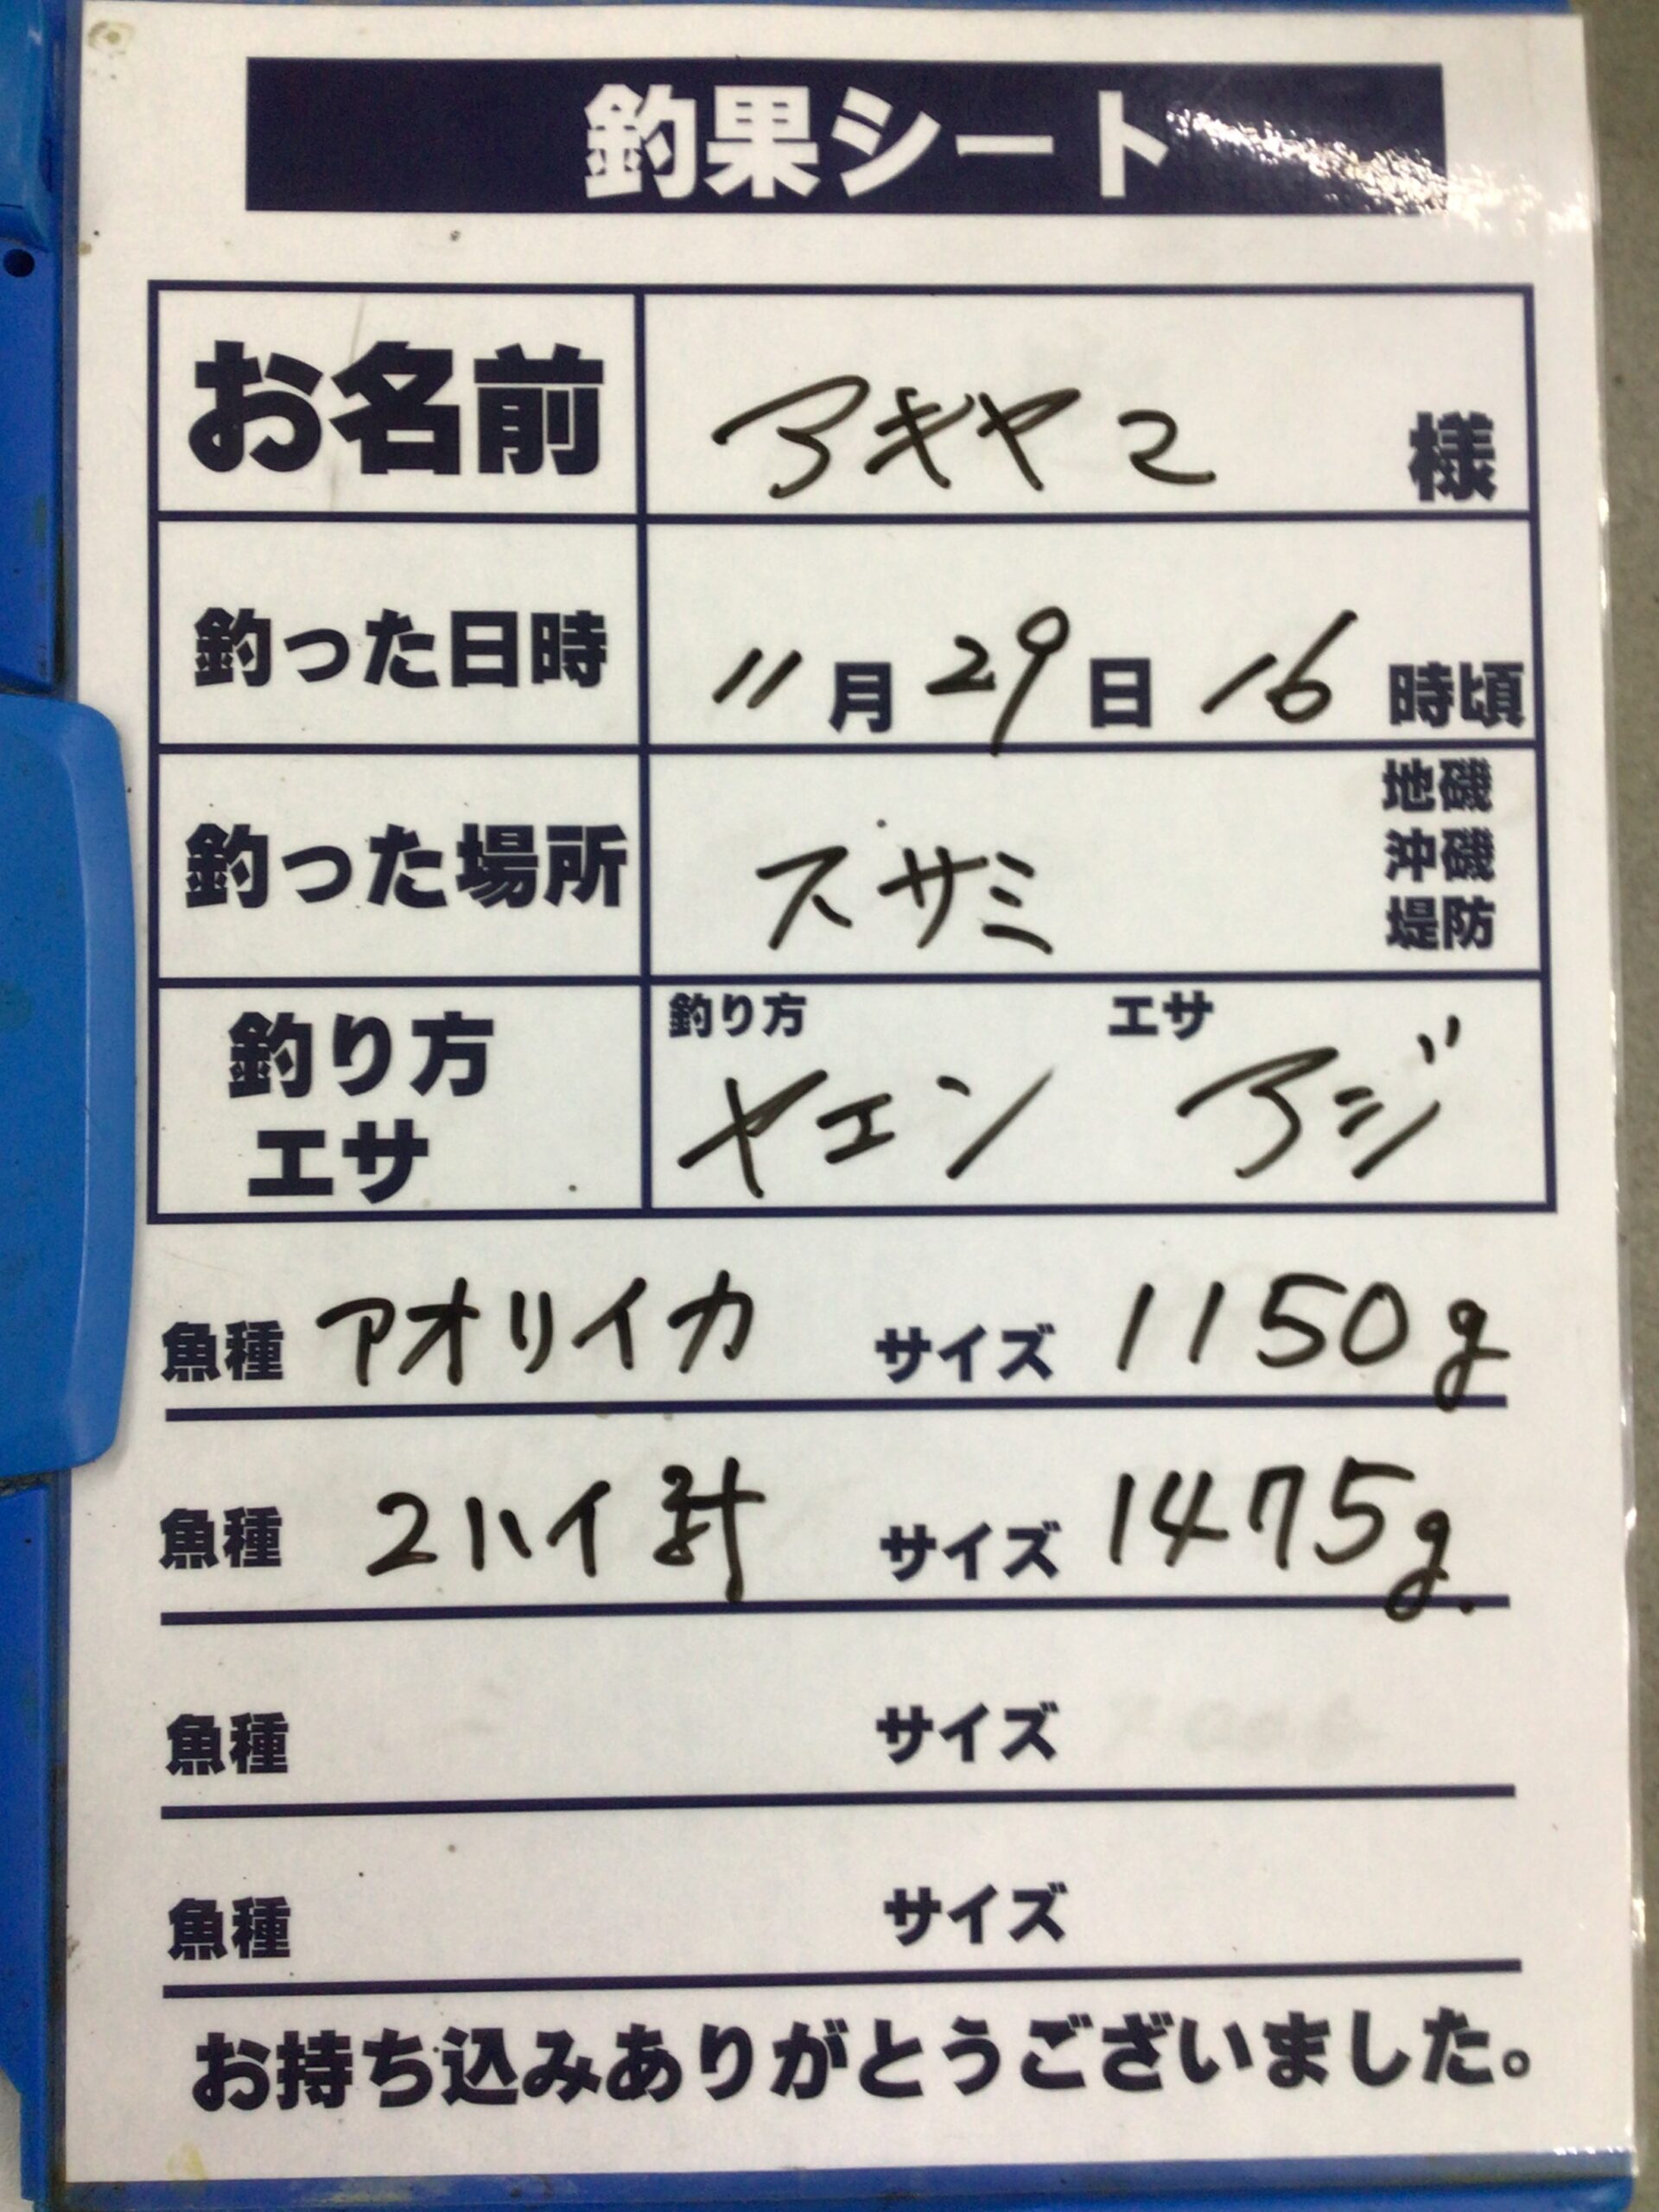 釣果シート
お名前 アキヤマ 様
釣った日時 11月29日16時頃
釣った場所 スサミ 地磯 沖磯 堤防
釣り方 エサ 釣り方 ヤエン エサ アジ
魚種 アオリイカ サイズ 1150g
魚種 2ハイ計 サイズ 1475g.
魚種 サイズ
魚種 サイズ
お持ち込みありがとうございました。